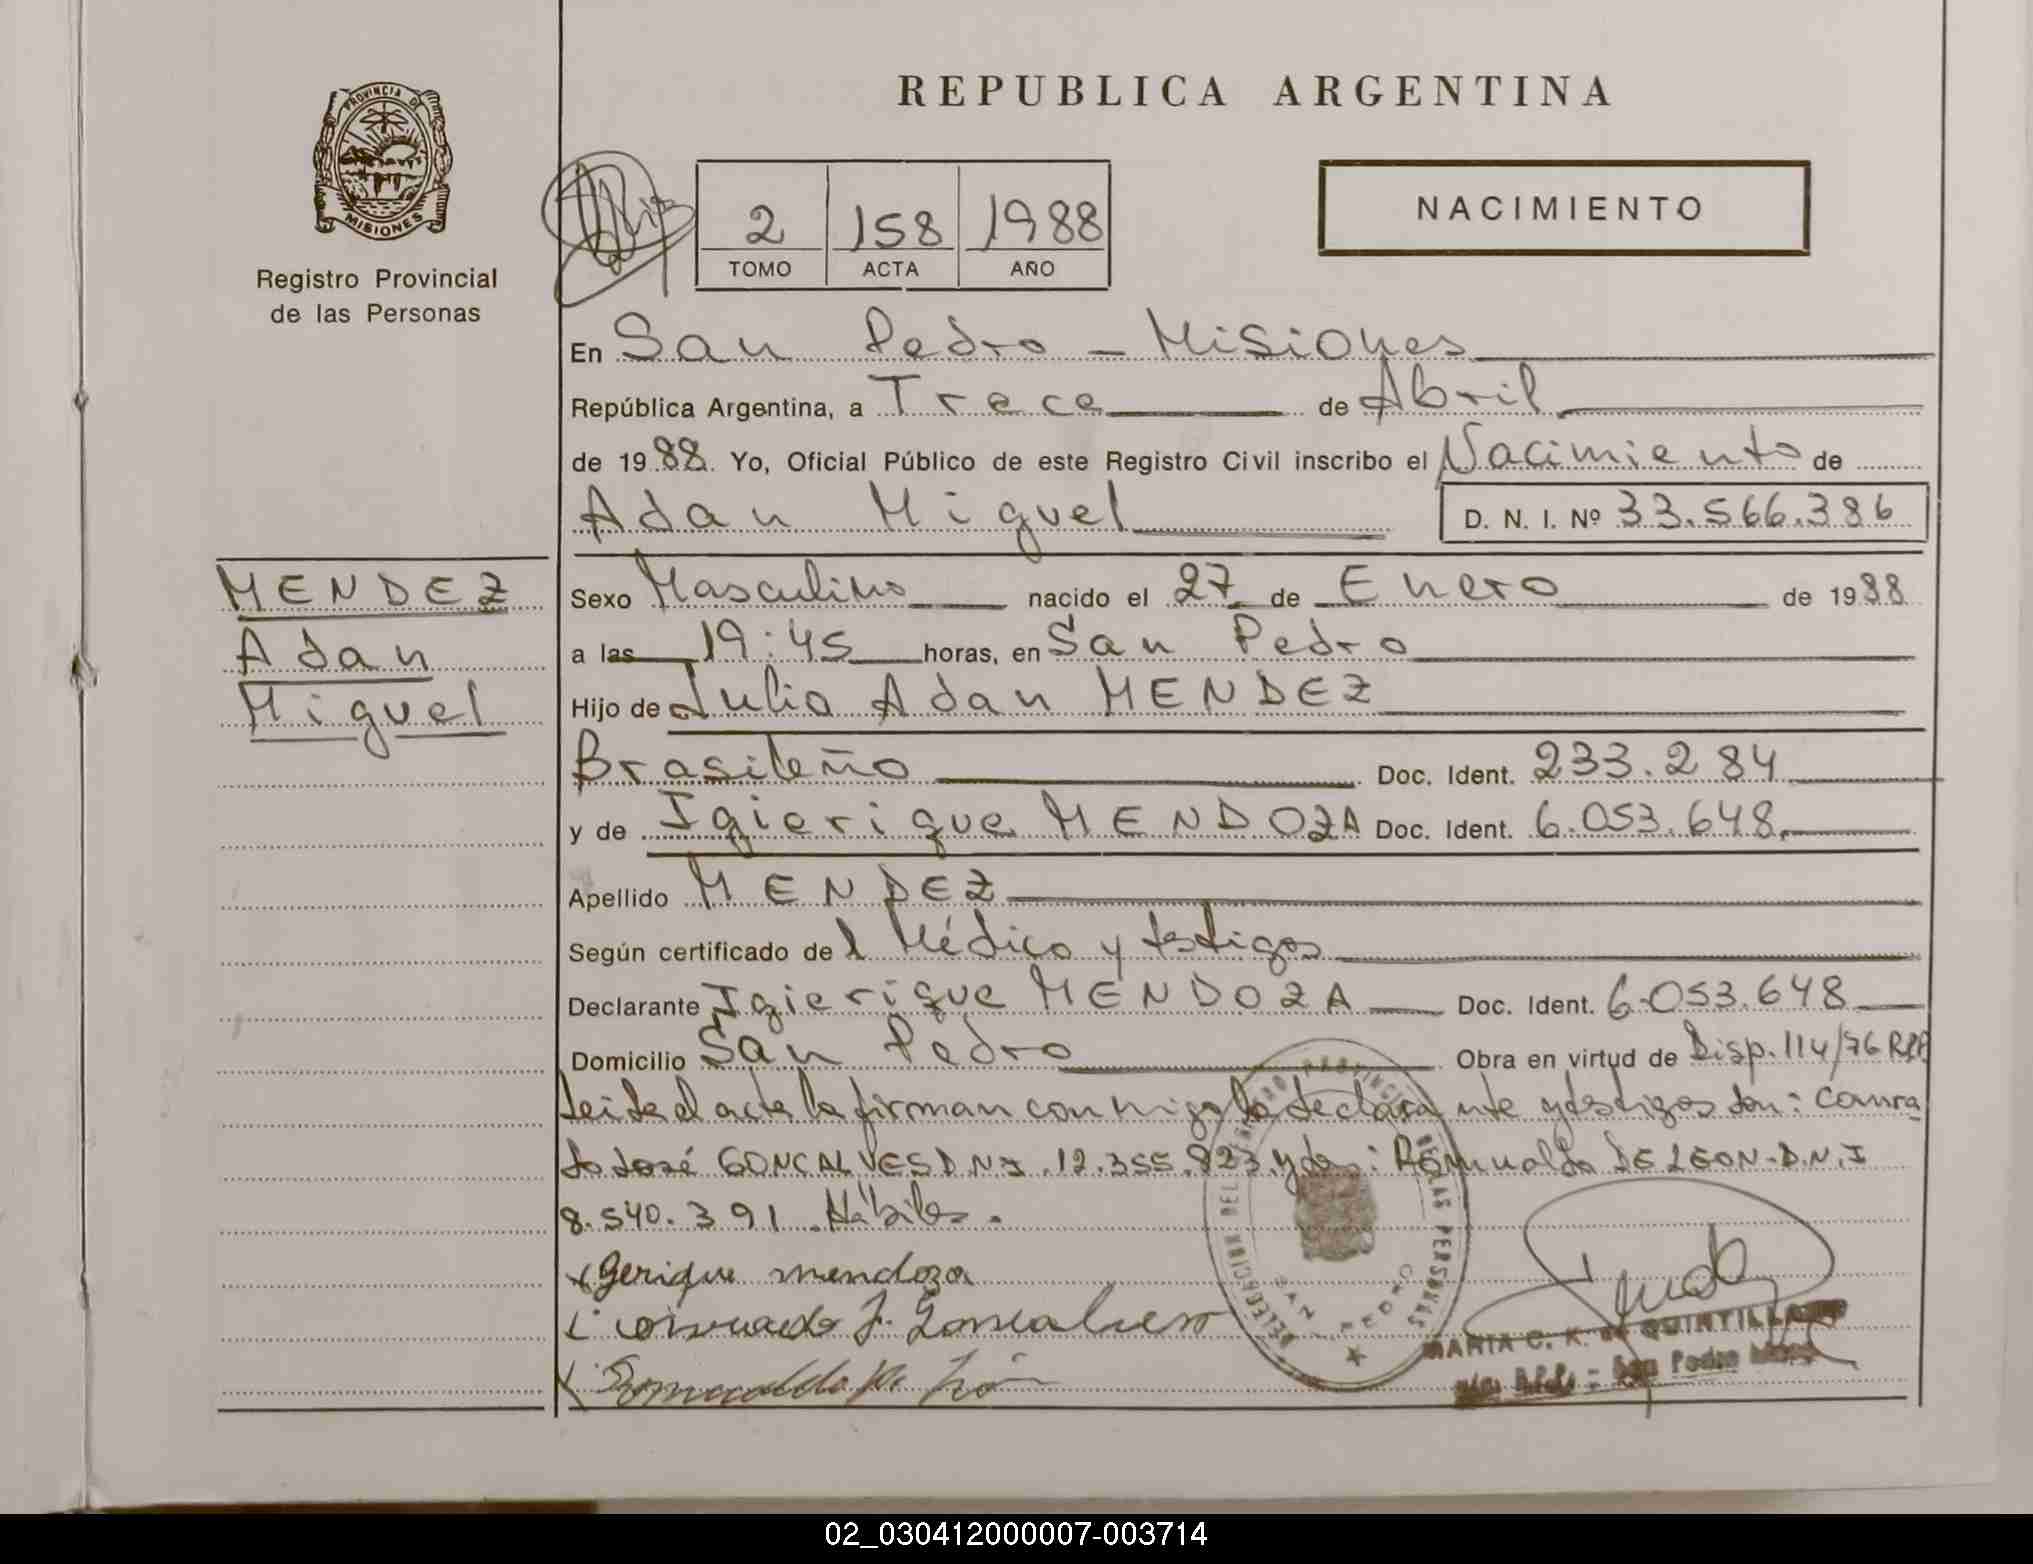 REPUBLICA ARGENTINA
PROVINCIA DE
MISIONES
Registro Provincial
de las Personas
2 158 1988
TOMO ACTA AÑO
NACIMIENTO
En San Pedro - Misiones
República Argentina, a Trece de Abril
de 1988. Yo, Oficial Público de este Registro Civil inscribo el Nacimiento de
Adan Miguel D. N. I. Nº 33.566.386
MENDEZ
Adan
Miguel
Sexo Masculino nacido el 27 de Enero de 1988
a las 19:45 horas, en San Pedro
Hijo de Julio Adan MENDEZ
Brasileño Doc. Ident. 233.284
y de Igierique MENDOZA Doc. Ident. 6.053.648
Apellido MENDEZ
Según certificado del Médico y testigos
Declarante Igierique MENDOZA Doc. Ident. 6.053.648
Domicilio San Pedro Obra en virtud de Disp. 114/76 RPP
Leida el acta la firman conmigo la declarante y testigos don: Conra
do José GONCALVES D.N.I. 12.355.823 y don: Romualdo DE LEON - D.N.I
8.540.391. Hábiles.
Igerique mendoza
Conrado J. Goncalves
Romualdo De León
DELEGACION DEL REGISTRO PROVINCIAL DE LAS PERSONAS
SAN PEDRO
MARIA C. K. de QUINTILLAN
San Pedro
02_030412000007-003714